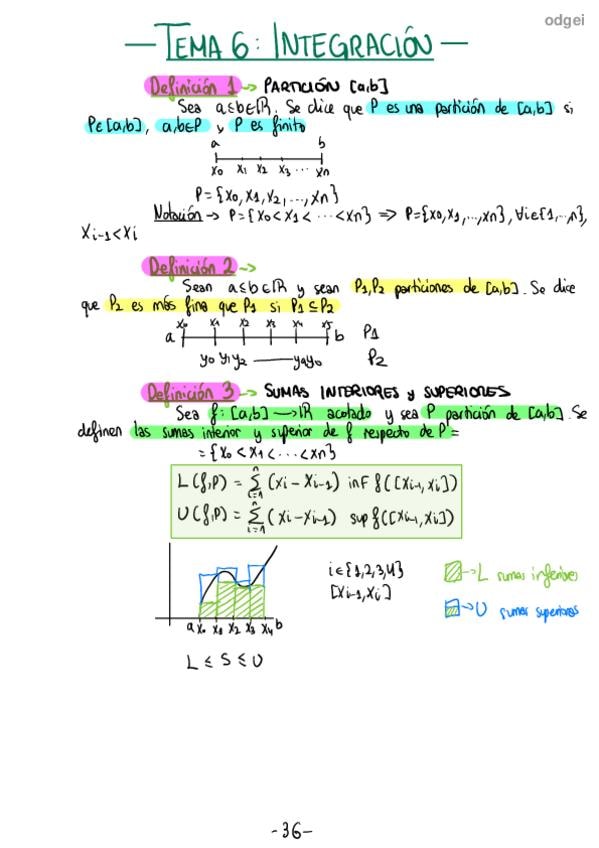 odgei
— TEMA 6: INTEGRACIÓN —
Definición 1 → PARTICIÓN [a,b]
Sea a≤b∈ℝ. Se dice que P es una partición de [a,b] si
P∈[a,b], a,b∈P y P es finito
a b
x₀ x₁ x₂ x₃ ... xn
P={x₀,x₁,x₂,...,xn}
Notación → P={x₀<x₁<...<xn} => P={x₀,x₁,...,xn}, ∀i∈{1,...,n},
xi-1<xi
Definición 2 →
Sean a≤b∈ℝ y sean P1,P2 particiones de [a,b]. Se dice
que P2 es más fina que P1 si P1⊆P2
x₀ x₁ x₂ x₃ x₄ x₅
a b P1
y₀ y₁ y₂ y₉ y₁₀ P2
Definición 3 → SUMAS INTERIORES y SUPERIORES
Sea f: [a,b] → ℝ acotado y sea P partición de [a,b]. Se
definen las sumas inferior y superior de f respecto de P =
= {x₀<x₁<...<xn}
L(f,P) = Σ i=1 n (xi - xi-1) inf f([xi-1,xi])
U(f,P) = Σ i=1 n (xi-xi-1) sup f([xi-1,xi])
i∈{1,2,3,4}
[xi-1,xi]
→ L sumas inferiores
→ U sumas superiores
a x₀ x₁ x₂ x₃ x₄ b
L ≤ S ≤ U
-36-